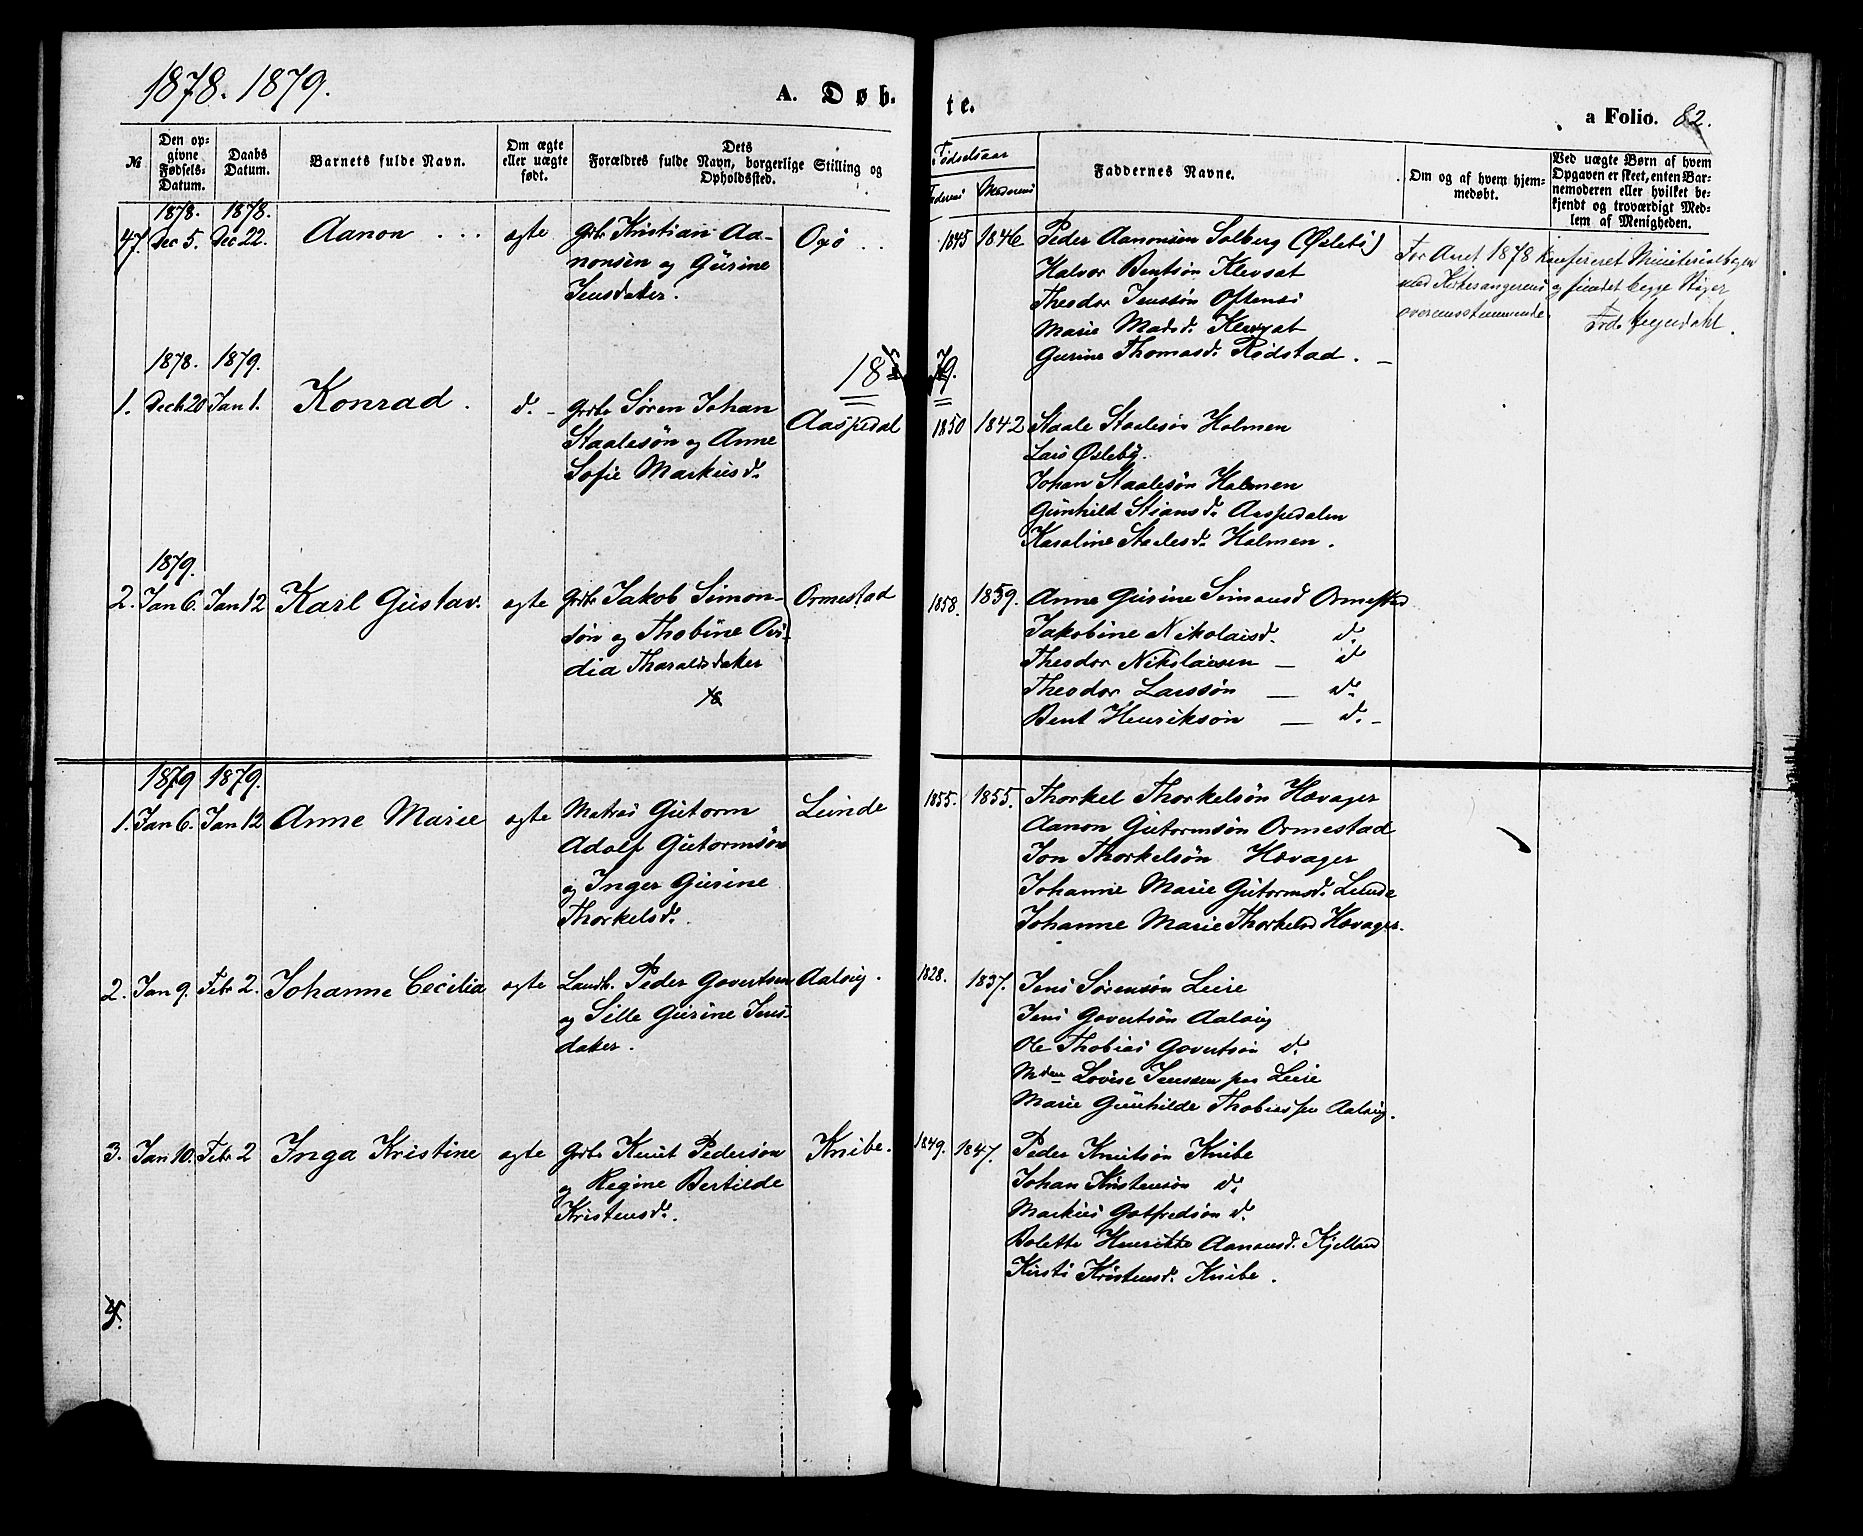 1878. 1879.
A. Døb-
te.
a Folio. 82.
№
Den op-
givne
Fødsels-
Datum.
Daabs
Datum.
Barnets fulde Navn.
Om ægte
eller uægte
født.
Dets
Forældres fulde Navn, borgerlige Stilling og
Opholdssted.
Fødselsaar
Faderens
Moderens
Faddernes Navne.
Om og af hvem hjem-
medøbt.
Ved uægte Børn af hvem
Opgaven er skeet, enten Bar-
nemoderen eller hvilket be-
kjendt og troværdigt Med-
lem af Menigheden.
1878. 1878.
47. Dec 5. Dec 22. Aanon . . . ægte
Grbr Kristian Aa-
nonsen og Gurine
Jensdater.
Osø . .
1845 1846
Peder Aanonsen Solberg (Øslebø)
Halvor Bentsøn Klevsat
Theodor Jenssøn Oftenes
Marie Madsd.
Gurine Thomasd. Rødstad. –
For Aaret 1878 Ministerialbogen
med Kirkesangerens og fundet begge Bøger
overensstemmende.
1878. 1879.
1879.
1. Decb. 20 Jan 1. Konrad. d. –
Grbr Søren Johan
Staalesøn og Anne
Sofie Markusd.
Aaspedal
1850 1842
Staale Staalesøn Holmen
Lars Øsleby.
Johan Staalesøn Holmen
Gunhild Stiansd. Aaspedalen
Karoline Staalesd. Holmen.
1879.
2. Jan 6. Jan 12 Karl Gustav. ægte
Grbr Jakob Simon-
søn og Thobine Ovi-
dia Tharaldsdater
18
Ormestad
1858. 1859.
Anne Gurine Simonsd Ormestad
Jakobine Nikolaisd. d.
Theodor Nikolaisen – d
Theodor Larssøn – d.
Bent Henriksøn – d. –
1879 1879.
1. Jan 6. Jan 12 Anne Marie ægte
Matros Gutorm
Adolf Gutormsøn
og Inger Gurine
Thorkelsd.
Lunde
1855. 1855.
Thorkel Thorkelsøn Hævager
Aanon Gutormsøn Ormestad
Jon Thorkelsøn Hævager
Johanne Marie Gutormsd. Lunde
Johanne Marie Thorkelsd Hævager.
2. Jan 9. Febr 2. Johanne Cecilia ægte
Landh. Peder Govertsen
og Sille Gurine Jens-
dater.
Aalvig.
1828. 1837.
Jens Sørensøn Leire
Jens Govertsøn Aalvig
Ole Thobias Govertsøn d.
Mdm Lovise Jenssen paa Leire
Marie Gunhilde Thobias paa Aalvig.
3. Jan 10. Febr 2 Inga Kristine ægte
Grbr Knut Pedersøn
og Regine Bertilde
Kristensd.
Knibe.
1849. 1847.
Peder Knutsøn Knibe
Johan Kristensøn d.
Markus Gotfredsøn d.
Bolette Henrikke Aanonsd. Kjelland
Kirsti Kristensd. Knibe.